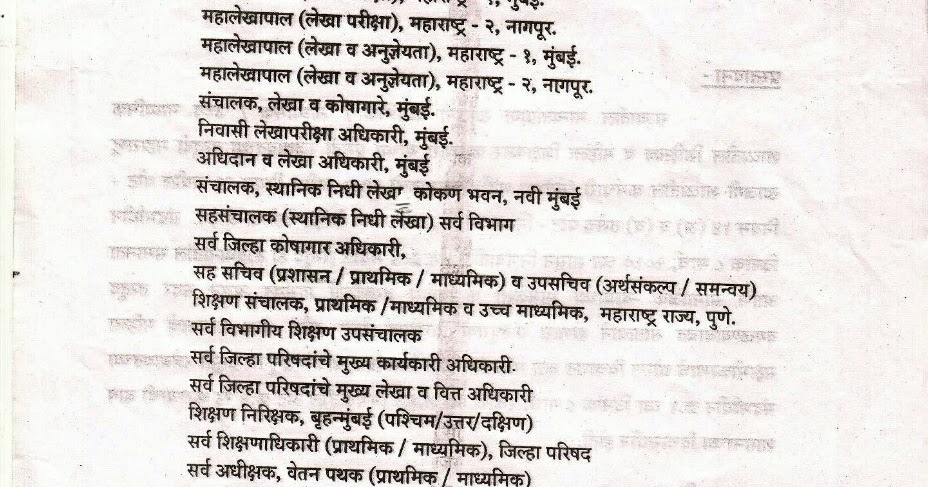 महालेखापाल (लेखा परीक्षा), महाराष्ट्र - २, नागपूर.
महालेखापाल (लेखा व अनुज्ञेयता), महाराष्ट्र - १, मुंबई.
महालेखापाल (लेखा व अनुज्ञेयता), महाराष्ट्र - २, नागपूर.
संचालक, लेखा व कोषागारे, मुंबई.
निवासी लेखापरीक्षा अधिकारी, मुंबई.
अधिदान व लेखा अधिकारी, मुंबई
संचालक, स्थानिक निधी लेखा कोकण भवन, नवी मुंबई
सहसंचालक (स्थानिक निधी लेखा) सर्व विभाग
सर्व जिल्हा कोषागार अधिकारी,
सह सचिव (प्रशासन / प्राथमिक / माध्यमिक) व उपसचिव (अर्थसंकल्प / समन्वय)
शिक्षण संचालक, प्राथमिक /माध्यमिक व उच्च माध्यमिक, महाराष्ट्र राज्य, पुणे.
सर्व विभागीय शिक्षण उपसंचालक
सर्व जिल्हा परिषदांचे मुख्य कार्यकारी अधिकारी.
सर्व जिल्हा परिषदांचे मुख्य लेखा व वित्त अधिकारी
शिक्षण निरिक्षक, बृहन्मुंबई (पश्चिम/उत्तर/दक्षिण)
सर्व शिक्षणाधिकारी (प्राथमिक / माध्यमिक), जिल्हा परिषद
सर्व अधीक्षक, वेतन पथक (प्राथमिक / माध्यमिक)